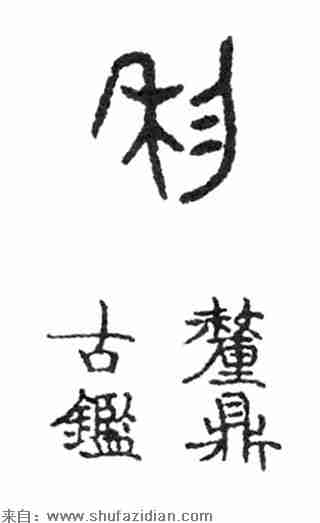 利
釐鼎
古鑑
来自：www.shufazidian.com